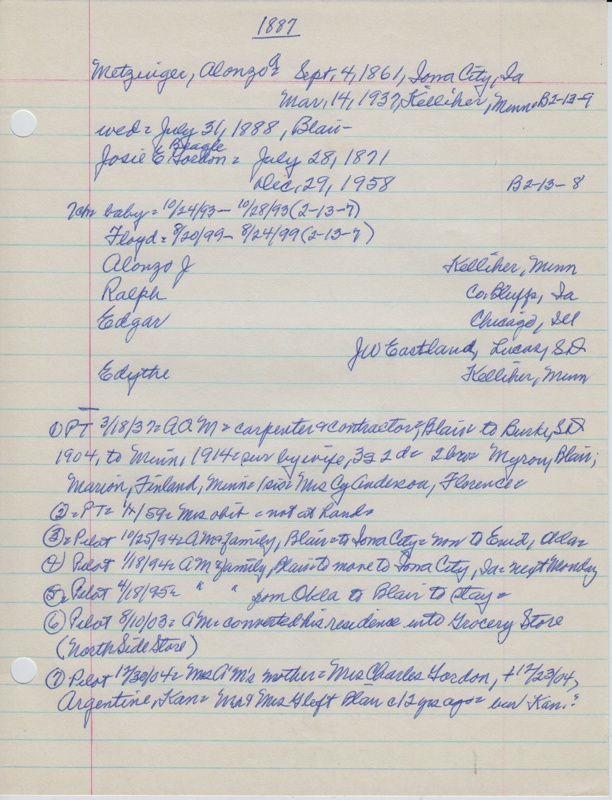 1887
Metzinger, Alonzo A = Sept. 4, 1861, Iona City, Ia
Mar. 14, 1937, Kelliher, Minn. B2-13-9
wed = July 31, 1888, Blair -
Beagle
Josie E Gordon = July 28, 1871
Dec. 29, 1958 B2-13-8
baby = 10/24/93 - 10/28/93 (2-13-7)
Floyd = 8/20/99 - 8/24/99 (2-13-7)
Alonzo J Kelliher, Minn
Ralph Co. Bluffs, Ia
Edgar Chicago, Ill
JW Eastland, Lucas, S.D
Edythe Kelliher, Minn
① PT 3/18/37 = A A M = carpenter & contractor, Blair to Burke, S.D
1904, to Minn, 1914 = sur by wife, 3s 2d = 2 bro = Myron, Blair;
Marion, Finland, Minn = 1 sis = Mrs Cy Anderson, Florence =
② = PT = 1/1/59 = Mrs obit = not at hand =
③ = Pilot 10/25/94 = A M & family, Blair to Iona City = now to Enid, Okla =
④ Pilot 1/18/94 = A M = family, Blair to move to Iona City, Ia = next Monday
⑤ Pilot 4/18/95 = " " from Okla to Blair to stay =
⑥ Pilot 8/10/03 = A M = converted his residence into Grocery Store
(North Side Store)
⑦ Pilot 12/30/04 = Mrs A M's mother = Mrs Charles Gordon, + 12/23/04,
Argentine, Kan = Mr & Mrs G left Blair c 12 yrs ago = bur Kan.?